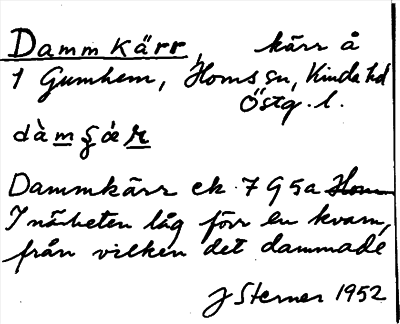 Dammkärr, kärr å
1 Gumhem, Homs sn, Kinda hd
Östg. l.
dàm̲ʂár̲
Dammkärr ek. 7 G 5a Hom
I närheten låg förr en kvarn,
från vilken det dammade
J Sterner 1952